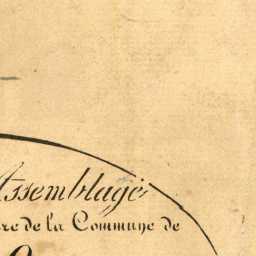 Assemblage
re de la Commune de